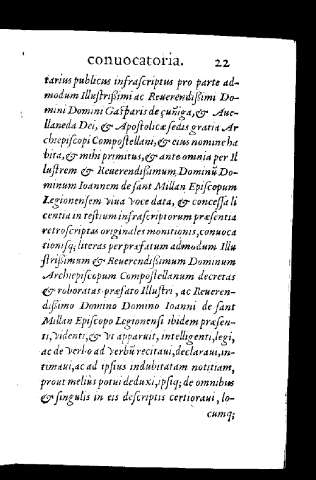 conuocatoria. 22
tarius publicus infrascriptus pro parte ad-
modum Illustrißimi ac Reuerendißimi Do-
mini Domini Gasparis de çuñiga, & Aue-
llaneda Dei, & Apostolicæ sedis gratia Ar-
chiepiscopi Compostellani, & eius nomine ha
bita, & mihi primitus, & ante omnia per Il
lustrem & Reuerendißimum, Dominũ Do-
minum Ioannem de sant Millan Episcopum
Legionensem viua voce data, & concessa li
centia in testium infrascriptorum præsentia
retroscriptas originales monitionis, conuoca
tionisq; literas per præfatum admodum Illu
strißimum & Reuerendißimum Dominum
Archiepiscopum Compostellanum decretas
& roboratas præfato Illustri, ac Reueren-
dißimo Domino Domino Ioanni de sant
Millan Episcopo Legionensi ibidem præsen-
ti, videnti, & vt apparuit, intelligenti, legi,
ac de verbo ad verbũ recitaui, declaraui, in-
timaui, ac ad ipsius indubitatam notitiam,
prout melius potui deduxi, ipsiq; de omnibus
& singulis in eis descriptis certioraui, lo-
cumq;